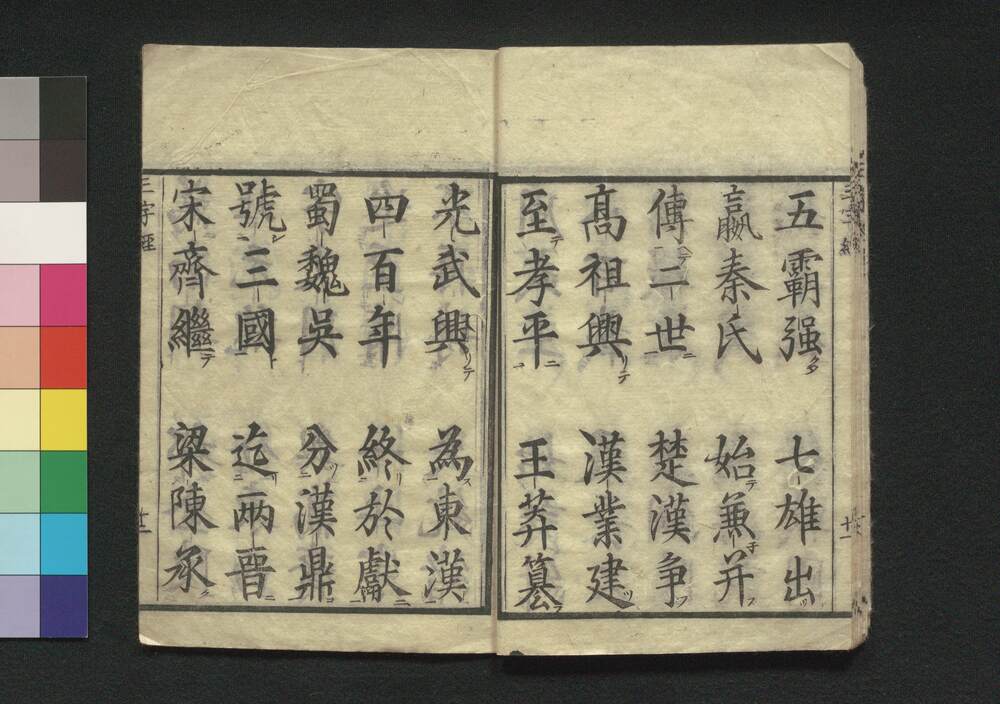 五霸强 七雄出
嬴秦氏 始兼并
傳二世 楚漢爭
高祖興 漢業建
至孝平 王莽篡
光武興 為東漢
四百年 終於獻
蜀魏吳 分漢鼎
號三國 迄兩晉
宋齊繼 梁陳承
三字經